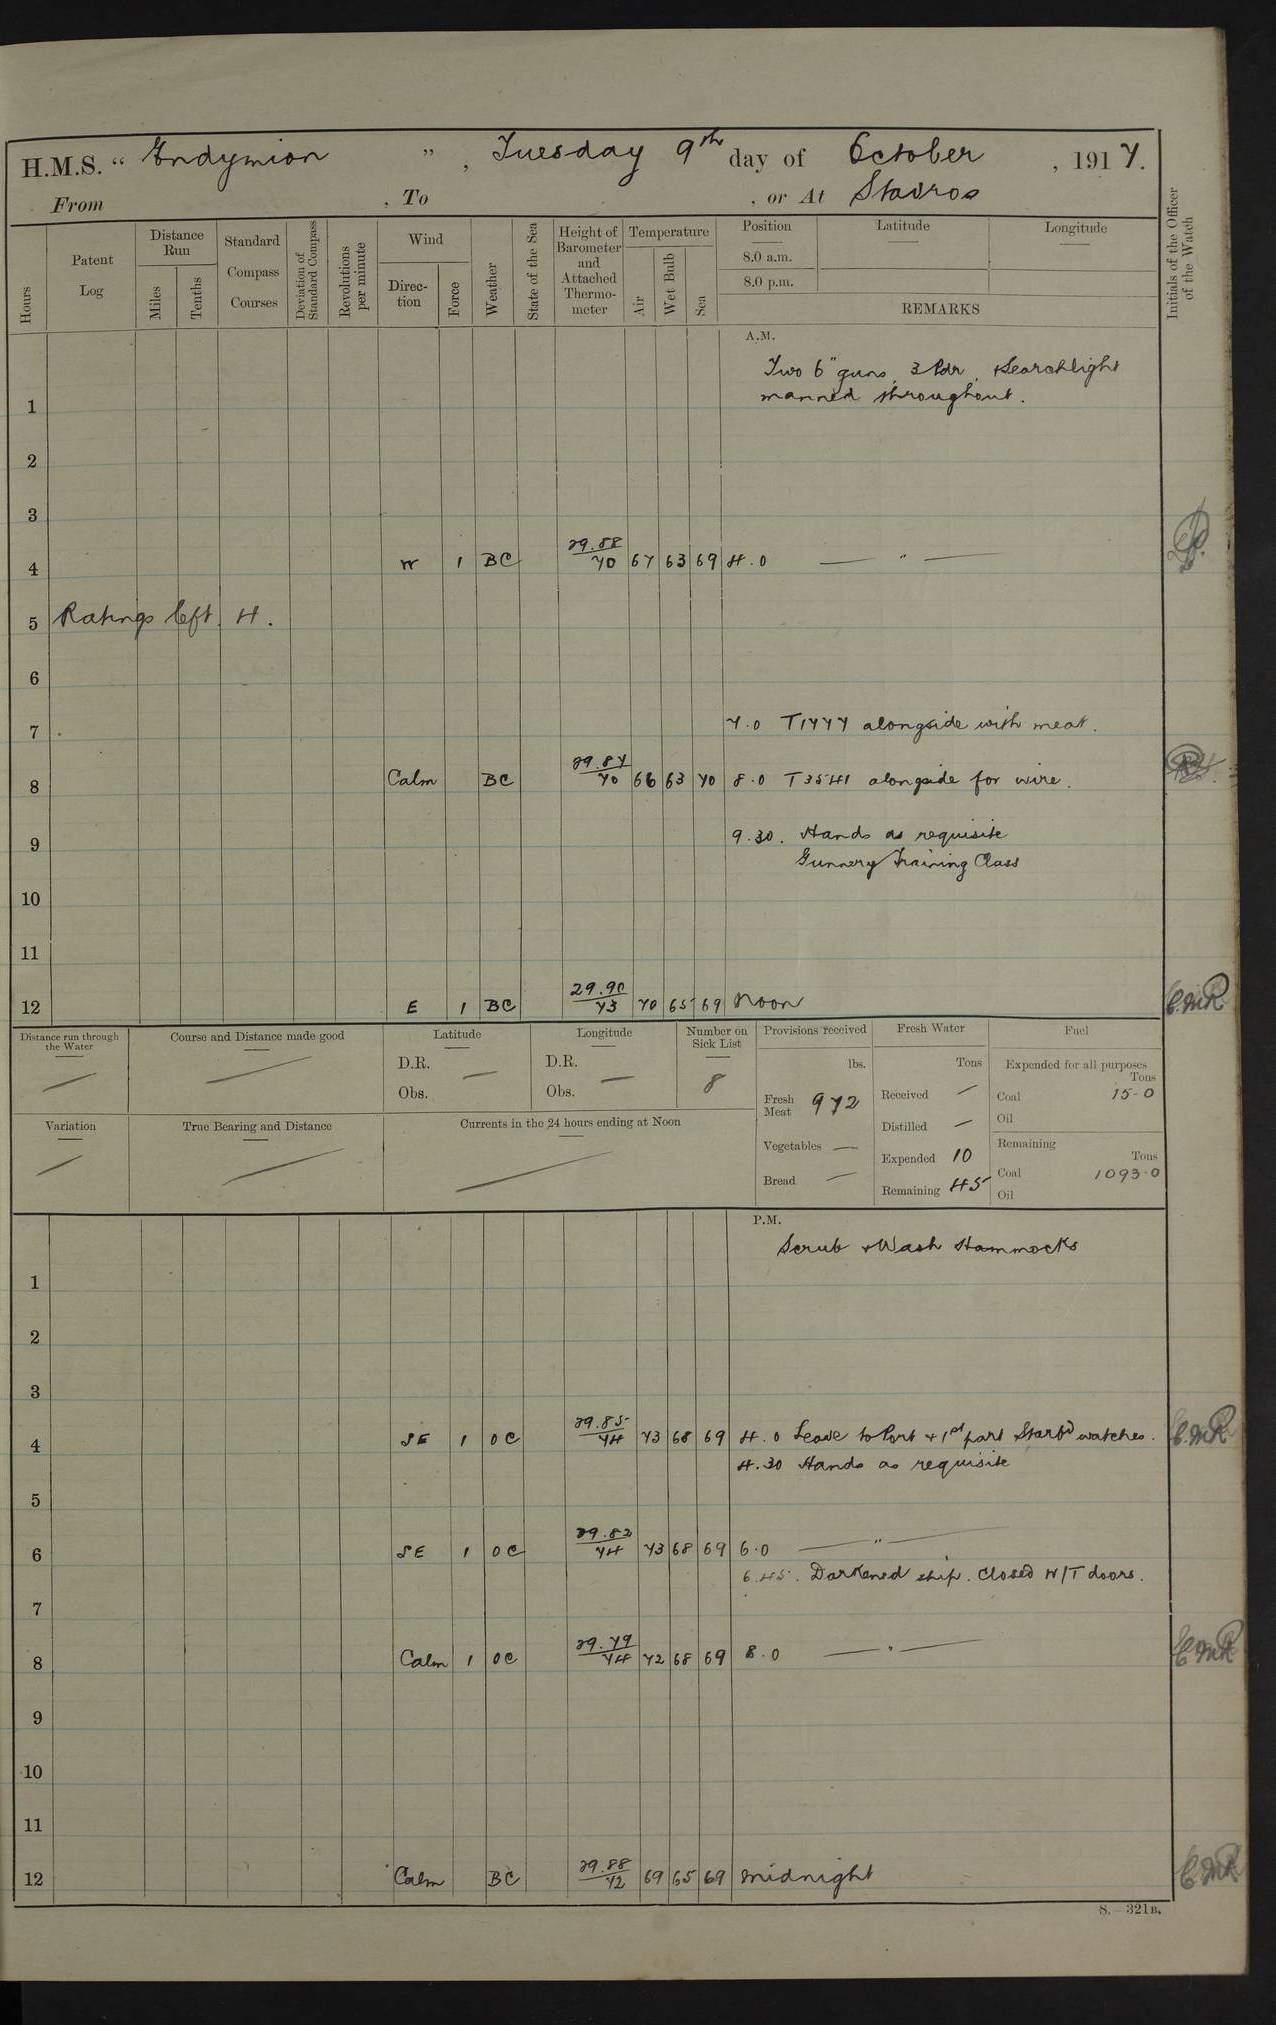 H.M.S. " Endymion " , Tuesday 9th day of October , 1917.
From , To , or At Stavros
Hours
Patent Log
Distance Run
Miles
Tenths
Standard Compass Courses
Deviation of Standard Compass
Revolutions per minute
Wind
Direction
Force
Weather
State of the Sea
Height of Barometer and Attached Thermometer
Temperature
Air
Wet Bulb
Sea
Position
8.0 a.m.
8.0 p.m.
Latitude
Longitude
REMARKS
Initials of the Officer of the Watch
A.M.
Two 6" guns, 3 Pdr, + Searchlight
1 manned throughout.
2
3
4 W 1 BC 29.88/70 67 63 69 4.0 — " —
5 Ratings left 4.
6
7 7.0 T1777 alongside with meat.
8 Calm BC 29.87/70 66 63 70 8.0 T3541 alongside for wire.
9 9.30. Hands as requisite
Gunnery Training Class
10
11
12 E 1 BC 29.90/73 70 65 69 Noon C.MR
Distance run through the Water —
Course and Distance made good —
Latitude
D.R. —
Obs.
Longitude
D.R. —
Obs.
Number on Sick List
8
Provisions received
lbs.
Fresh Meat 972
Vegetables —
Bread —
Fresh Water
Tons
Received —
Distilled —
Expended 10
Remaining 45
Fuel
Expended for all purposes
Tons
Coal 15.0
Oil
Remaining
Tons
Coal 1093.0
Oil
Variation —
True Bearing and Distance —
Currents in the 24 hours ending at Noon —
P.M.
Scrub + Wash Hammocks
1
2
3
4 SE 1 OC 29.85/74 73 68 69 4.0 Leave to Port + 1st part Starbd watches. C.MR
4.30 Hands as requisite
5
6 SE 1 OC 29.82/74 73 68 69 6.0 — " —
6.45. Darkened ship. Closed W/T doors.
7
8 Calm 1 OC 29.79/74 72 68 69 8.0 — " — C.MR
9
10
11
12 Calm BC 29.88/72 69 65 69 Midnight C.MR
S.—321B.